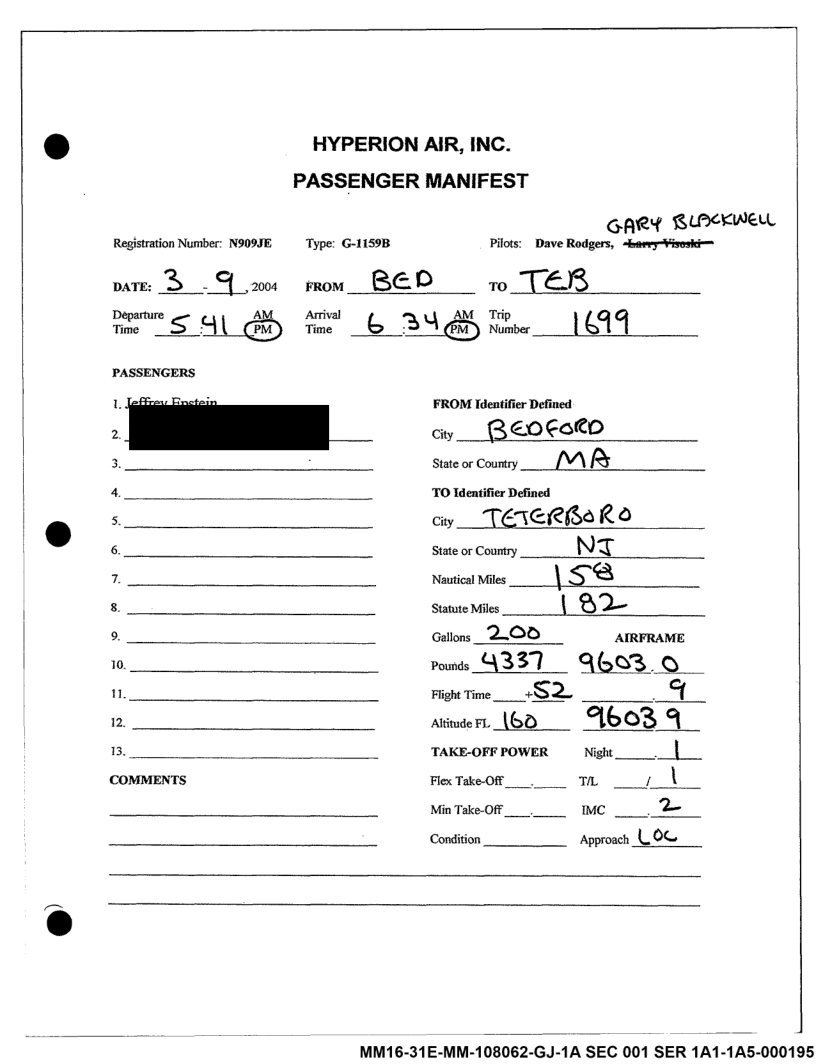 HYPERION AIR, INC.
PASSENGER MANIFEST
GARY BLACKWELL
Registration Number: N909JE Type: G-1159B Pilots: Dave Rodgers, Larry Visoski
DATE: 3 - 9 , 2004 FROM BED TO TEB
Departure Time 5 :41 AM PM Arrival Time 6 :34 AM PM Trip Number 1699
PASSENGERS
1. Jeffrey Epstein FROM Identifier Defined
2. City BEDFORD
3. State or Country MA
4. TO Identifier Defined
5. City TETERBORO
6. State or Country NJ
7. Nautical Miles 158
8. Statute Miles 182
9. Gallons 200 AIRFRAME
10. Pounds 4337 9603.0
11. Flight Time +52 .9
12. Altitude FL 160 9603 9
13. TAKE-OFF POWER Night . 1
COMMENTS Flex Take-Off . T/L / 1
Min Take-Off . IMC . 2
Condition Approach LOC
MM16-31E-MM-108062-GJ-1A SEC 001 SER 1A1-1A5-000195